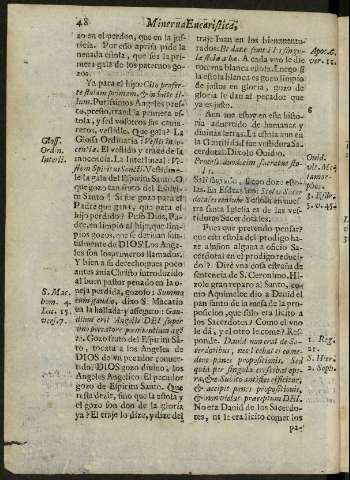 48 Minerva Eucaristica,
zo en el perdon, que en la jus-
ticia. Por esso apriſa pide la
neuada eſtola, que ſea la pri-
mera gala de los paternos go-
zos.
Ya para el hijo: Cito profer-
te ſtolam primam, & induite il-
lum. Puriſsimos Angeles preſ-
to, preſto, traed la primera eſ-
tola, y ſed voſotros ſus cama-
reros, veſtidle. Que gala? La
Gloſſa Ordinaria: Veſtis inno-
centiæ. El veſtido y traje de la
inocencia. La Interlineal: Ve-
ſtem Spiritus Sancti. Veſtidme-
le la gala del Eſpiritu Santo. O
que gozo tan dulce del Eſpiri-
tu Santo! Si fue gozo para el
Padre que gana, que para el
hijo perdido? Pues Dios, Pa-
dre, embia al hijo, que
pios gozos,
talmente de DIOS. Los Ange-
les ſon los primeros llamados.
Y bien a ſu derecho, pues poco
antes auia Chriſto introducido
al buen paſtor penado en la o-
ueja perdida, gozoſo: Summa
cum gaudio, dixo S. Macario
en la hallada y aſſeguro: Gau-
dium erit Angelis DEI ſuper
vno peccatore pœnitentiam agẽ
te. Gozo fruto del Eſpiritu Sã-
to, tocata a los Angeles de
DIOS de vn pecador conuer-
tido. DIOS gozo diuino, los
Angeles Angelico. El pecador
gozo de Eſpiritu Santo. Que
reſta dezir, ſino que la eſtola y
el gozo ſon don de la gloria
ya? El traje lo dize, y dize del
Gloſſ.
Ord. &
Interli.
S. Mac.
hom. 4.
Luc. 15.
verſ. 7.
traje Iuan en los bienauentu-
rados: Et datæ ſunt illis ſingu-
læ ſtolæ albæ. A cada vno le die
ron vna blanca eſtola. Luego ſi
la eſtola blanca es gozo limpio
de juſtos en gloria, gozo de
gloria le dan al pecador que
ya es juſto.
Aun no eſtoy en eſta hiſto-
ria aduertido de humanas y
diuinas letras. La eſtola aun en
la Gentilidad fue veſtidura Sa-
cerdotal. Dixolo Ouidio.
eſto-
las. En Eſdras:
y Eſdras, en nueſ-
tra ſanta Igleſia es de las veſ-
tiduras Sacerdotales.
Pues que pretendo penſar?
que eſta eſtola del prodigo ha-
ze aluſion alguna a oficio Sa-
cerdotal en el prodigo reduci-
do? Diré vna coſa eſtraña de
ſentencia de S. Geronimo. Hi-
zole gran reparo al Santo, co-
mo Aquimelec dio a Dauid el
pan ſanto de la meſa de la pro-
poſicion, que ſolo era licito a
los Sacerdotes? Como el vno
le dà, y el otro le come? Reſ-
ponde. Dauid non erat de Sa-
cerdotibus, nec licebat ei come-
dere panes propoſitionis. Sed
quia per ſingula creſcebat ope-
ra, & a Sauitis antiſtes efficitur,
& accepit panes propoſitionis,
& non violat præceptum DEI.
No era Dauid de los Sacerdo-
tes, ni le era licito comer los
pa-
Apoc. 6.
ver. 11.
8
Ouid.
6
1. Reg.
21.
S. Hier.
2. Soph.